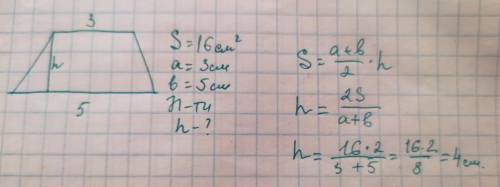 3
h
5
S=16см²
a=3см
в=5см
h-?
S=\frac{a+в}{2}·h
h=\frac{2S}{a+в}
h=\frac{16·2}{3+5}=\frac{16·2}{8}=4см.